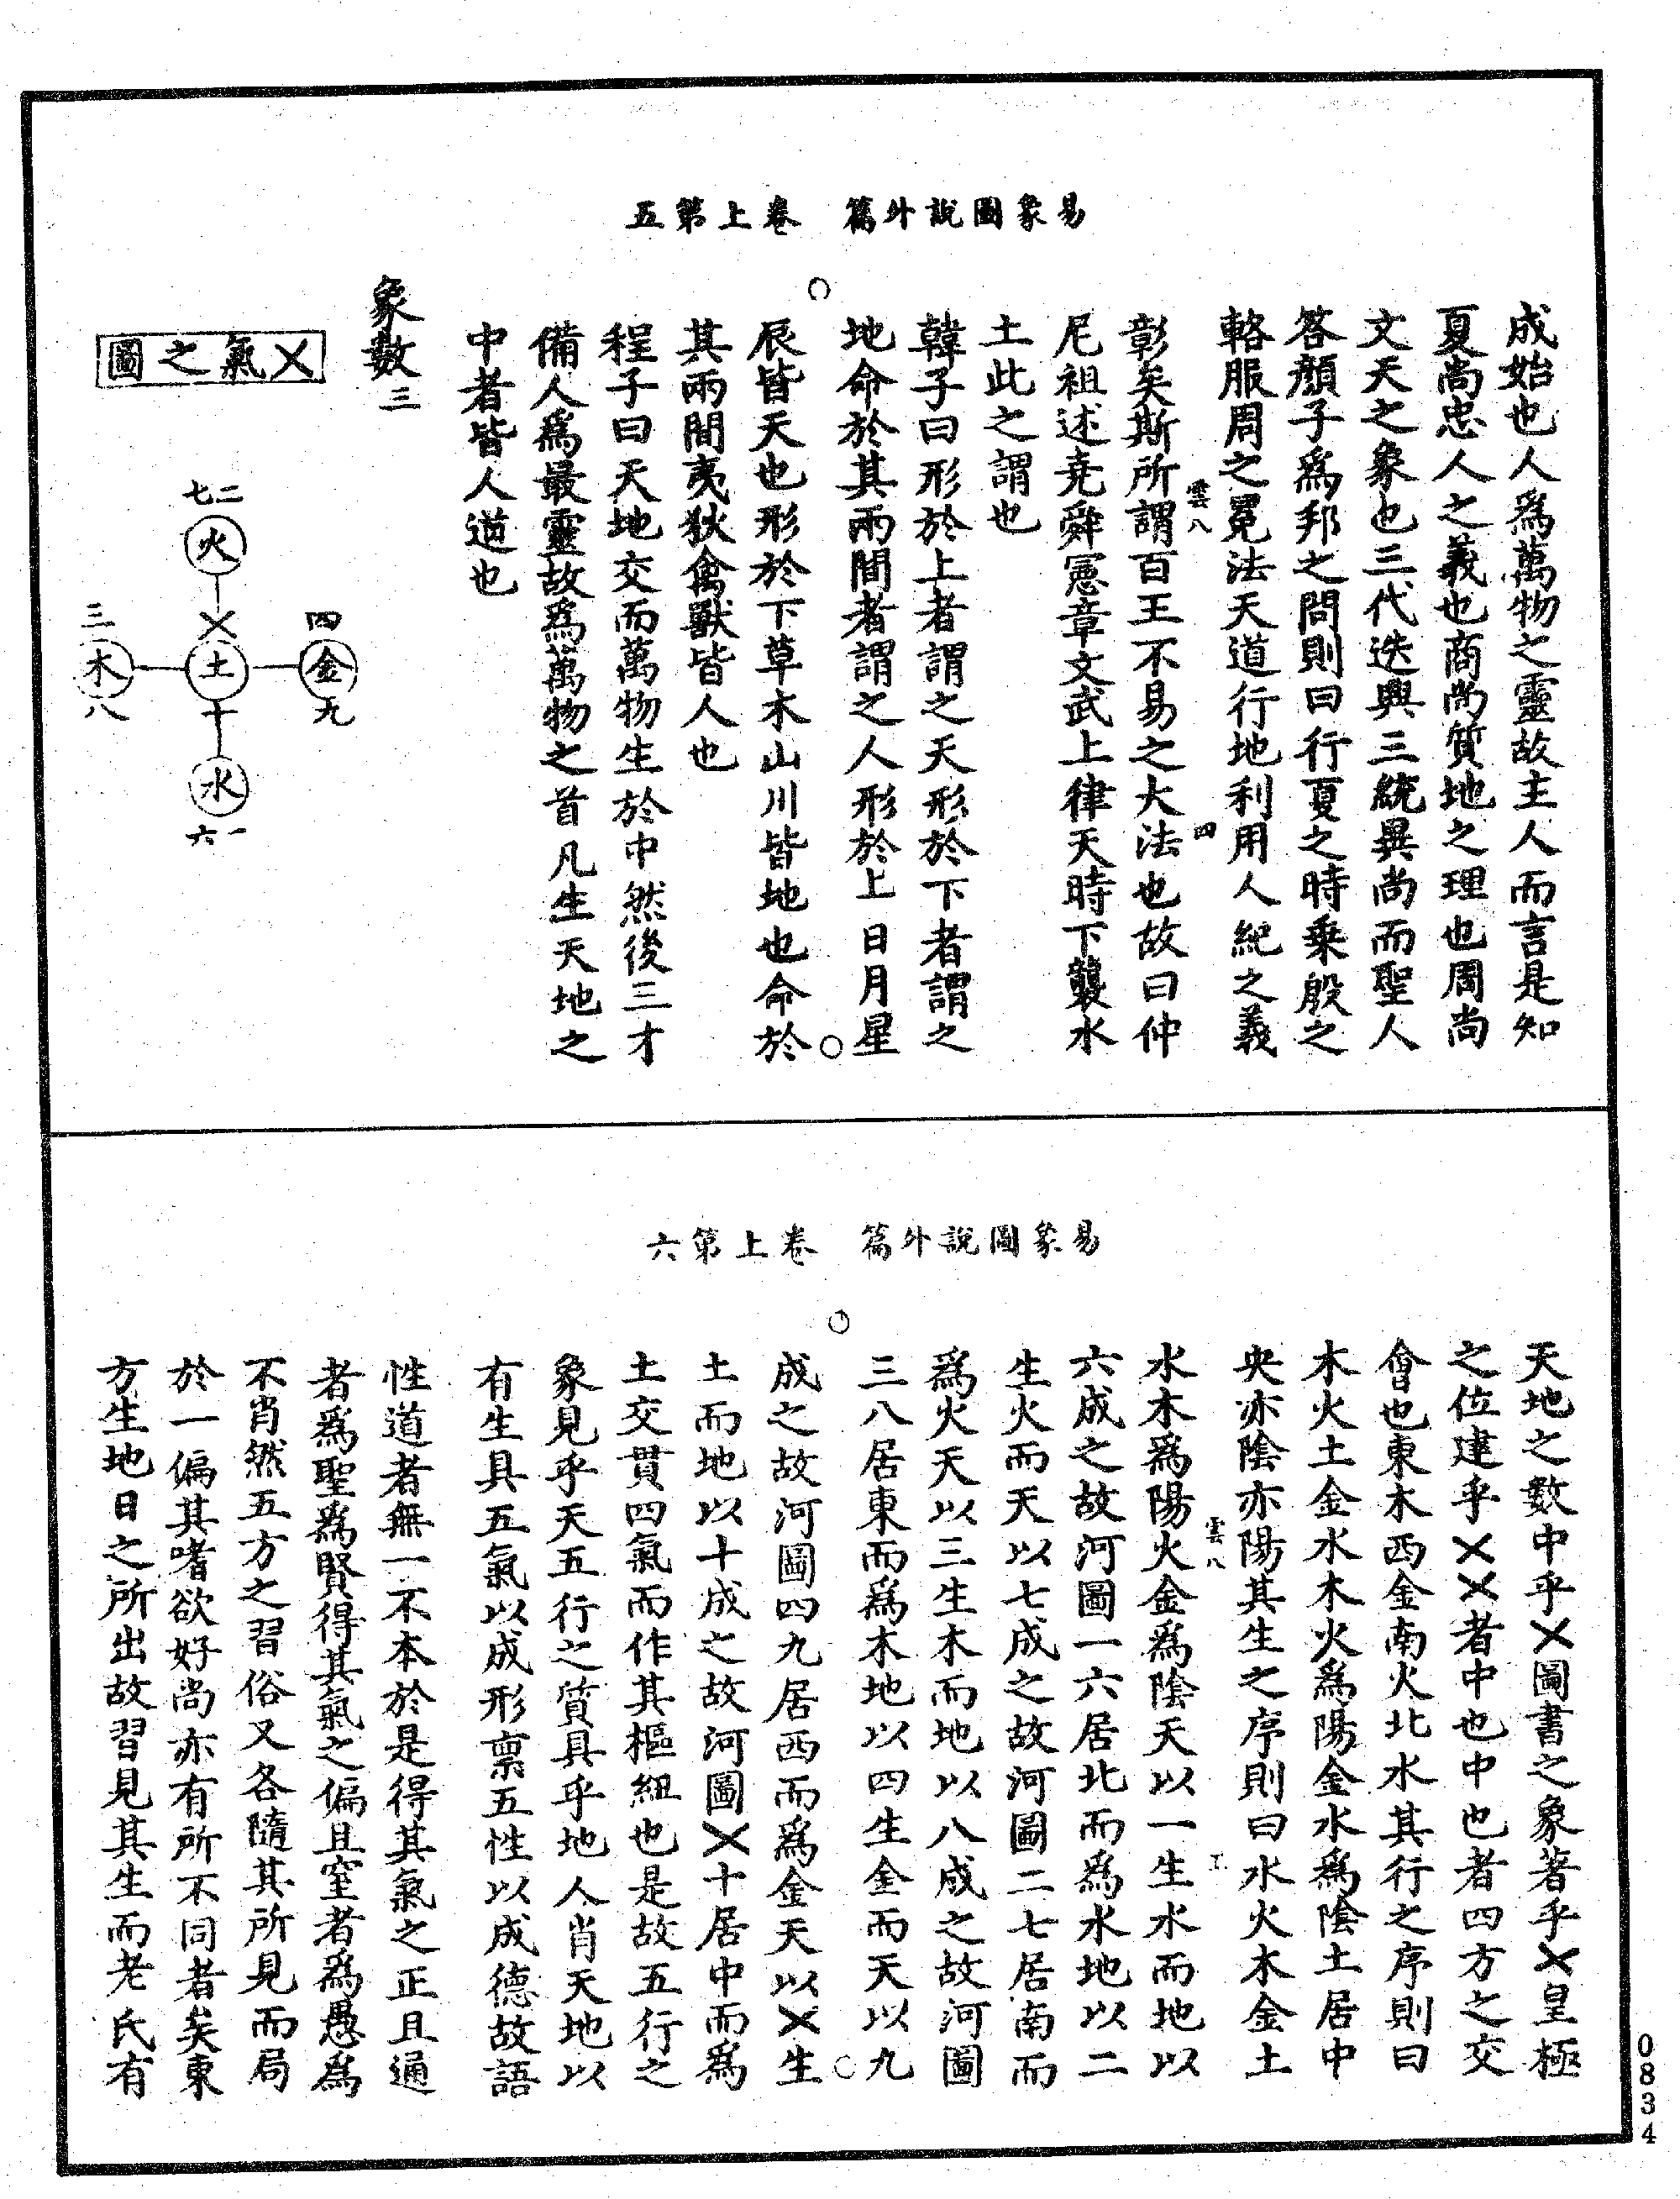 易象圖說外篇　卷上第五
成始也人爲萬物之靈故主人而言是知
夏尚忠人之義也商尚質地之理也周尚
文天之象也三代迭興三統異尚而聖人
答顏子爲邦之問則曰行夏之時乘殷之
輅服周之冕法天道行地利用人紀之義
雲八　四
彰矣斯所謂百王不易之大法也故曰仲
尼祖述堯舜憲章文武上律天時下襲水
土此之謂也
韓子曰形於上者謂之天形於下者謂之
地命於其兩間者謂之人形於上日月星
辰皆天也形於下草木山川皆地也命於
其兩間夷狄禽獸皆人也
程子曰天地交而萬物生於中然後三才
備人爲最靈故爲萬物之首凡生天地之
中者皆人道也
象數三
㐅氣之圖
二七
火
㐅
四
金
九
土
三
木
八
十
水
一六
易象圖說外篇　卷上第六
天地之數中乎㐅圖書之象著乎㐅皇極
之位建乎㐅㐅者中也中也者四方之交
會也東木西金南火北水其行之序則曰
木火土金水木火爲陽金水爲陰土居中
央亦陰亦陽其生之序則曰水火木金土
雲八　工
水木爲陽火金爲陰天以一生水而地以
六成之故河圖一六居北而爲水地以二
生火而天以七成之故河圖二七居南而
爲火天以三生木而地以八成之故河圖
三八居東而爲木地以四生金而天以九
成之故河圖四九居西而爲金天以㐅生
土而地以十成之故河圖㐅十居中而爲
土交貫四氣而作其樞紐也是故五行之
象見乎天五行之質具乎地人肖天地以
有生具五氣以成形禀五性以成德故語
性道者無一不本於是得其氣之正且通
者爲聖爲賢得其氣之偏且窒者爲愚爲
不肖然五方之習俗又各隨其所見而局
於一偏其嗜欲好尚亦有所不同者矣東
方生地日之所出故習見其生而老氏有
0834